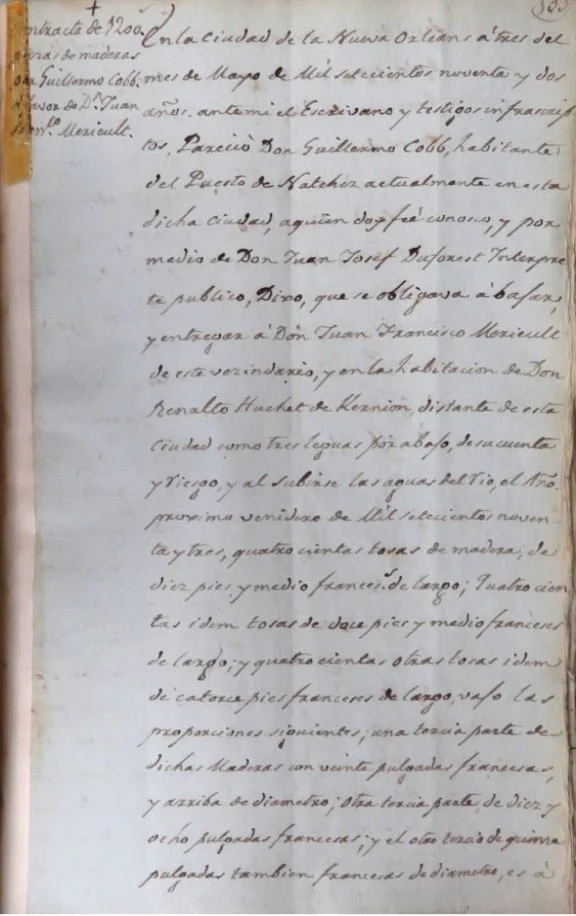 133
Contracta de 1200.
piezas de maderas
Dn. Guillermo Cobb.
a favor de Dn. Juan
Franco. Mericult.
En la Ciudad de la Nueva Orleans á tres del
mes de Mayo de Mil setecientos noventa y dos
años. ante mi el Escrivano y testigos infrascrip
tos, Pareció Don Guillermo Cobb, habitante
del Puesto de Natchez actualmente en esta
dicha Ciudad, aquien doy feé conosco, y por
medio de Don Juan Josef Duforest Interpre
te publico, Dixo, que se obligava á baxar,
y entregar á Dön Juan Francisco Mericult
de este vezindario, y en la habitacion de Don
Renalto Huchet de Kernion, distante de esta
Ciudad como tres leguas por abaxo, de su cuenta
y riesgo, y al subirse las aguas del rio, el Año.
proximo venidero de Mil setecientos noven
ta y tres, quatro cientas tosas de madera, de
diez pies y medio frances.s de largo; Quatro cien
tas idem tosas de doce pies y medio franceses
de largo; y quatro cientas otras tosas idem
de catorce pies franceses de largo, vaxo las
proporciones siguientes; una tercia parte de
dichas Maderas con veinte pulgadas francesas,
y arriba de diametro; otra tercia parte, de diez y
ocho pulgadas francesas; y el otro tercio de quinze
pulgadas tambien francesas de diametro, es á